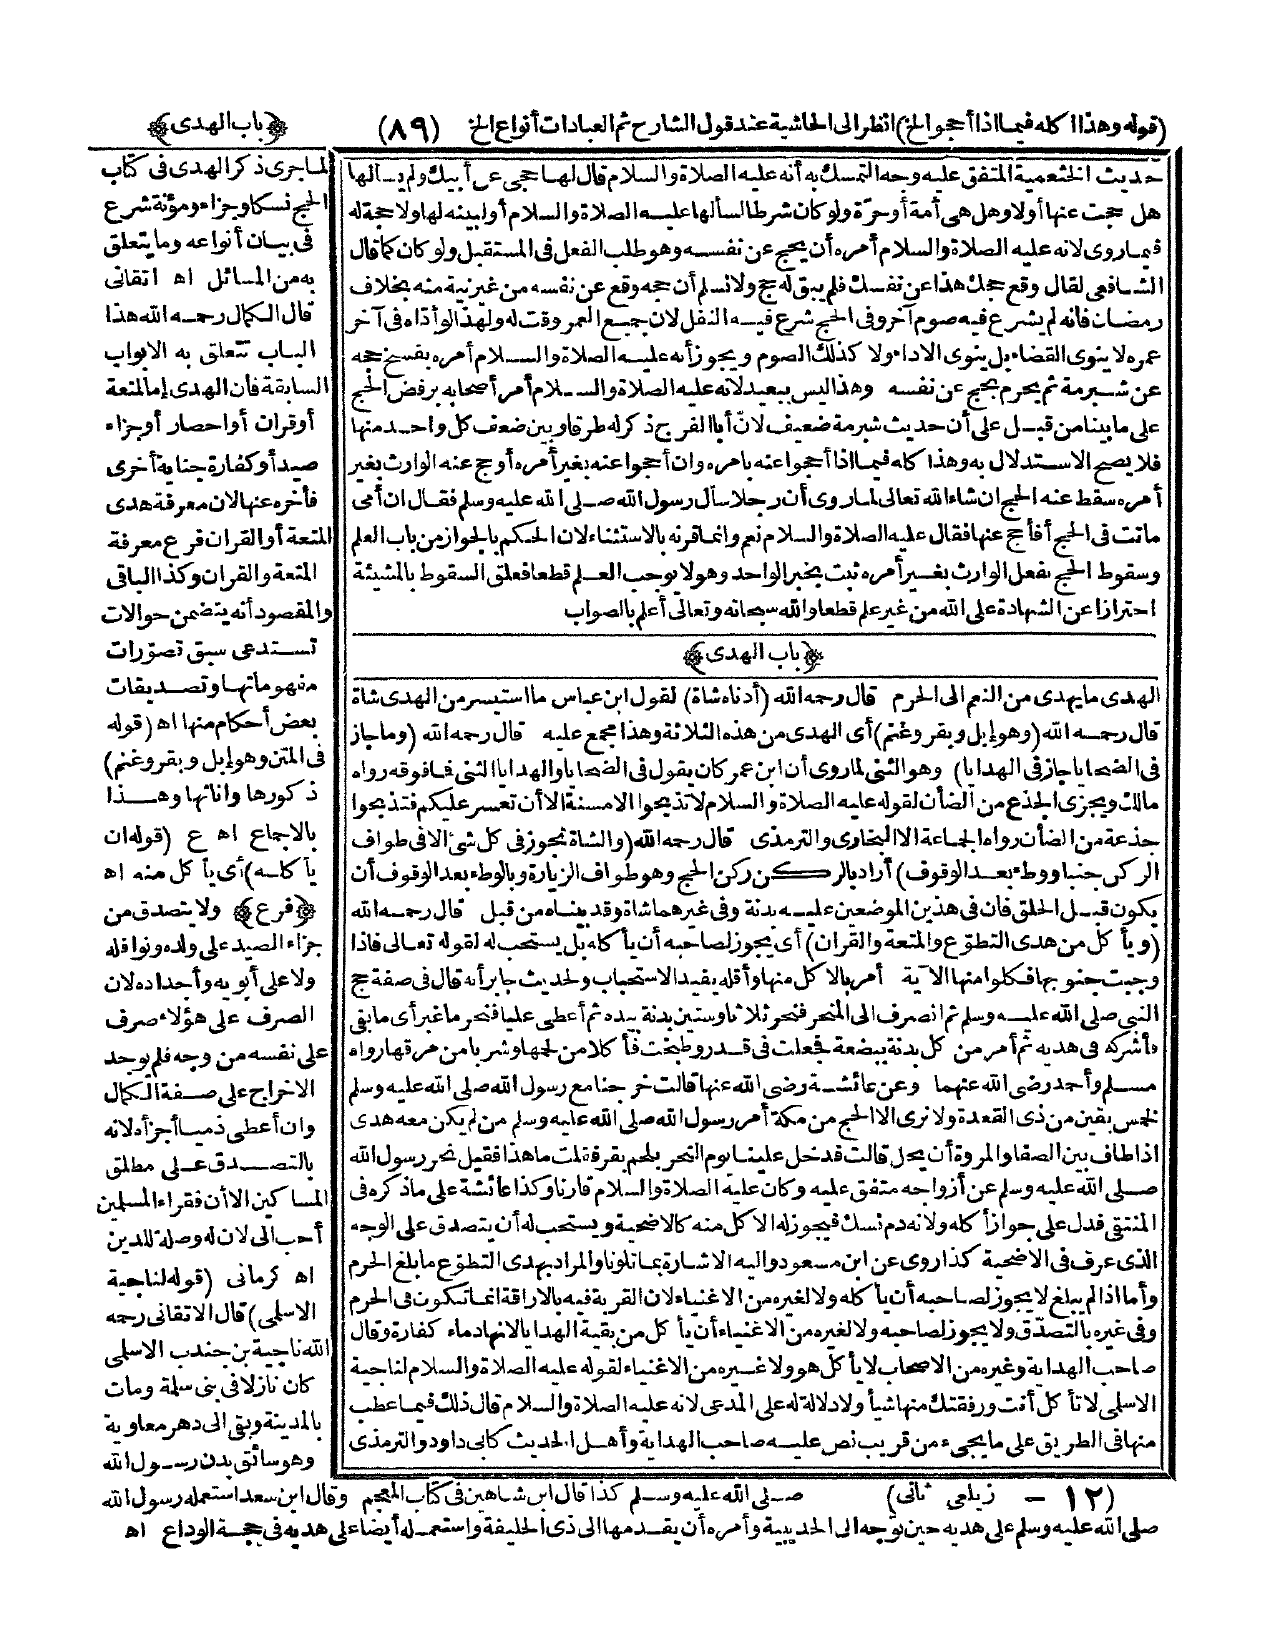 (قوله وهذا كله فيما اذا أحجوا الخ) انظر الى الحاشية عند قول الشارح ثم العبادات أنواع الخ (٨٩) ﴿باب الهدى﴾
حديث الخثعمية المتفق عليه وجه التمسك به أنه عليه الصلاة والسلام قال لها حجى عن أبيك ولم يسألها
هل حجت عنها أولا وهل هى أمة أو حرّة ولو كان شرطا لسألها عليه الصلاة والسلام أو لبينه لها ولا حجة له
فيما روى لانه عليه الصلاة والسلام أمره أن يحج عن نفسه وهو طلب الفعل فى المستقبل ولو كان كما قال
الشافعى لقال وقع حجك هذا عن نفسك فلم يبق له حج ولا نسلم أن حجه وقع عن نفسه من غير نية منه بخلاف
رمضان فانه لم يشرع فيه صوم آخر وفى الحج شرع فيه النفل لان جميع العمر وقت له ولهذا لو أدّاه فى آخر
عمره لا ينوى القضاء بل ينوى الاداء ولا كذلك الصوم ويجوز أنه عليه الصلاة والسلام أمره بفسخ حجه
عن شبرمة ثم يحرم بحج عن نفسه وهذا ليس ببعيد لانه عليه الصلاة والسلام أمر أصحابه برفض الحج
على ما بينا من قبل على أن حديث شبرمة ضعيف لانّ أبا الفرج ذكر له طرقا وبين ضعف كل واحد منها
فلا يصح الاستدلال به وهذا كله فيما اذا أحجوا عنه بامره وان أحجوا عنه بغير أمره أو حج عنه الوارث بغير
أمره سقط عنه الحج ان شاء الله تعالى لما روى أن رجلا سأل رسول الله صلى الله عليه وسلم فقال ان أمى
ماتت فى الحج أفأحج عنها فقال عليه الصلاة والسلام نعم وانما قرنه بالاستثناء لان الحكم بالجواز من باب العلم
وسقوط الحج بفعل الوارث بغير أمره ثبت بخبر الواحد وهو لا يوجب العلم قطعا فعلق السقوط بالمشيئة
احترازا عن الشهادة على الله من غير علم قطعا والله سبحانه وتعالى أعلم بالصواب
﴿باب الهدى﴾
الهدى ما يهدى من النعم الى الحرم قال رحمه الله (أدناه شاة) لقول ابن عباس ما استيسر من الهدى شاة
قال رحمه الله (وهو إبل وبقر وغنم) أى الهدى من هذه الثلاثة وهذا مجمع عليه قال رحمه الله (وما جاز
فى الضحايا جاز فى الهدايا) وهو الثنى لما روى أن ابن عمر كان يقول فى الضحايا والهدايا الثنى فما فوقه رواه
مالك ويجزى الجذع من الضأن لقوله عليه الصلاة والسلام لا تذبحوا الا مسنة الا أن تعسر عليكم فتذبحوا
جذعة من الضأن رواه الجماعة الا البخارى والترمذى قال رحمه الله (والشاة تجوز فى كل شئ الا فى طواف
الركن جنبا ووطء بعد الوقوف) أراد بالركن ركن الحج وهو طواف الزيارة وبالوطء بعد الوقوف أن
يكون قبل الحلق فان فى هذين الموضعين عليه بدنة وفى غيرهما شاة وقد بيناه من قبل قال رحمه الله
(ويأكل من هدى التطوّع والمتعة والقران) أى يجوز لصاحبه أن يأكله بل يستحب له لقوله تعالى فاذا
وجبت جنوبها فكلوا منها الآية أمر بالاكل منها وأقله يفيد الاستحباب ولحديث جابر أنه قال فى صفة حج
النبى صلى الله عليه وسلم ثم انصرف الى المنحر فنحر ثلاثا وستين بدنة بيده ثم أعطى عليا فنحر ما غبر أى ما بقى
وأشركه فى هديه ثم أمر من كل بدنة ببضعة فجعلت فى قدر وطبخت فأكلا من لحمها وشربا من مرقها رواه
مسلم وأحمد رضى الله عنهما وعن عائشة رضى الله عنها قالت خرجنا مع رسول الله صلى الله عليه وسلم
لخمس بقين من ذى القعدة ولا نرى الا الحج من مكة أمر رسول الله صلى الله عليه وسلم من لم يكن معه هدى
اذا طاف بين الصفا والمروة أن يحل قالت فدخل علينا يوم النحر بلحم بقر فقلت ما هذا فقيل نحر رسول الله
صلى الله عليه وسلم عن أزواجه متفق عليه وكان عليه الصلاة والسلام قارنا وكذا عائشة على ما ذكره فى
المنتقى فدل على جواز أكله ولانه دم نسك فيجوز له الاكل منه كالاضحية ويستحب له أن يتصدق على الوجه
الذى عرف فى الاضحية كذا روى عن ابن مسعود واليه الاشارة بما تلونا والمراد بهدى التطوّع ما بلغ الحرم
وأما اذا لم يبلغ لا يجوز لصاحبه أن يأكله ولا لغيره من الاغنياء لان القربة فيه بالاراقة انما تكون فى الحرم
وفى غيره بالتصدّق ولا يجوز لصاحبه ولا لغيره من الاغنياء أن يأكل من بقية الهدايا لانها دماء كفارة وقال
صاحب الهداية وغيره من الاصحاب لا يأكل هو ولا غيره من الاغنياء لقوله عليه الصلاة والسلام لناجية
الاسلمى لا تأكل أنت ورفقتك منها شيأ ولا دلالة له على المدعى لانه عليه الصلاة والسلام قال ذلك فيما عطب
منها فى الطريق على ما يجىء من قريب نص عليه صاحب الهداية وأهل الحديث كابى داود والترمذى
لما جرى ذكر الهدى فى كتاب
الحج نسكا وجزاء ومؤنة شرع
فى بيان أنواعه وما يتعلق
به من المسائل اه اتقانى
قال الكمال رحمه الله هذا
الباب تتعلق به الابواب
السابقة فان الهدى إما لمتعة
أو قران أو احصار أو جزاء
صيد أو كفارة جناية أخرى
فأخره عنها لان معرفة هدى
المتعة أو القران فرع معرفة
المتعة والقران وكذا الباقى
والمقصود أنه يتضمن حوالات
تستدعى سبق تصوّرات
مفهوماتها وتصديقات
بعض أحكام منها اه (قوله
فى المتن وهو إبل وبقر وغنم)
ذكورها واناثها وهذا
بالاجماع اه ع (قوله ان
يأكله) أى يأكل منه اه
﴿فرع﴾ ولا يتصدق من
جزاء الصيد على ولده ونوافله
ولا على أبويه وأجداده لان
الصرف على هؤلاء صرف
على نفسه من وجه فلم يوجد
الاخراج على صفة الكمال
وان أعطى ذميا أجزأه لانه
بالتصدق على مطلق
المساكين الا أن فقراء المسلمين
أحب الى لان له وصلة للدين
اه كرمانى (قوله لناجية
الاسلمى) قال الاتقانى رحمه
الله ناجية بن جندب الاسلمى
كان نازلا فى بنى سلمة ومات
بالمدينة وبقى الى دهر معاوية
وهو سائق بدن رسول الله
(١٢ - زيلعى ثانى) صلى الله عليه وسلم كذا قال ابن شاهين فى كتاب المعجم وقال ابن سعد استعمله رسول الله
صلى الله عليه وسلم على هديه حين توجه الى الحديبية وأمره أن يقدمها الى ذى الحليفة واستعمله أيضا على هديه فى حجة الوداع اه